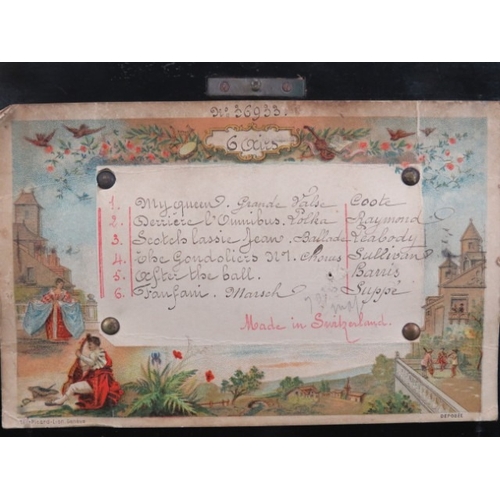 No 36933.
6 Airs
1. My queen. Grande Valse Coote
2. Derrière l'Omnibus. Polka Raymond
3. Scotch lassie Jean. Ballade Peabody
4. The Gondoliers No 1. Chorus Sullivan
5. After the ball. Harris
6. Fanfani. Marsch Suppé
Made in Switzerland.
DEPOSEE